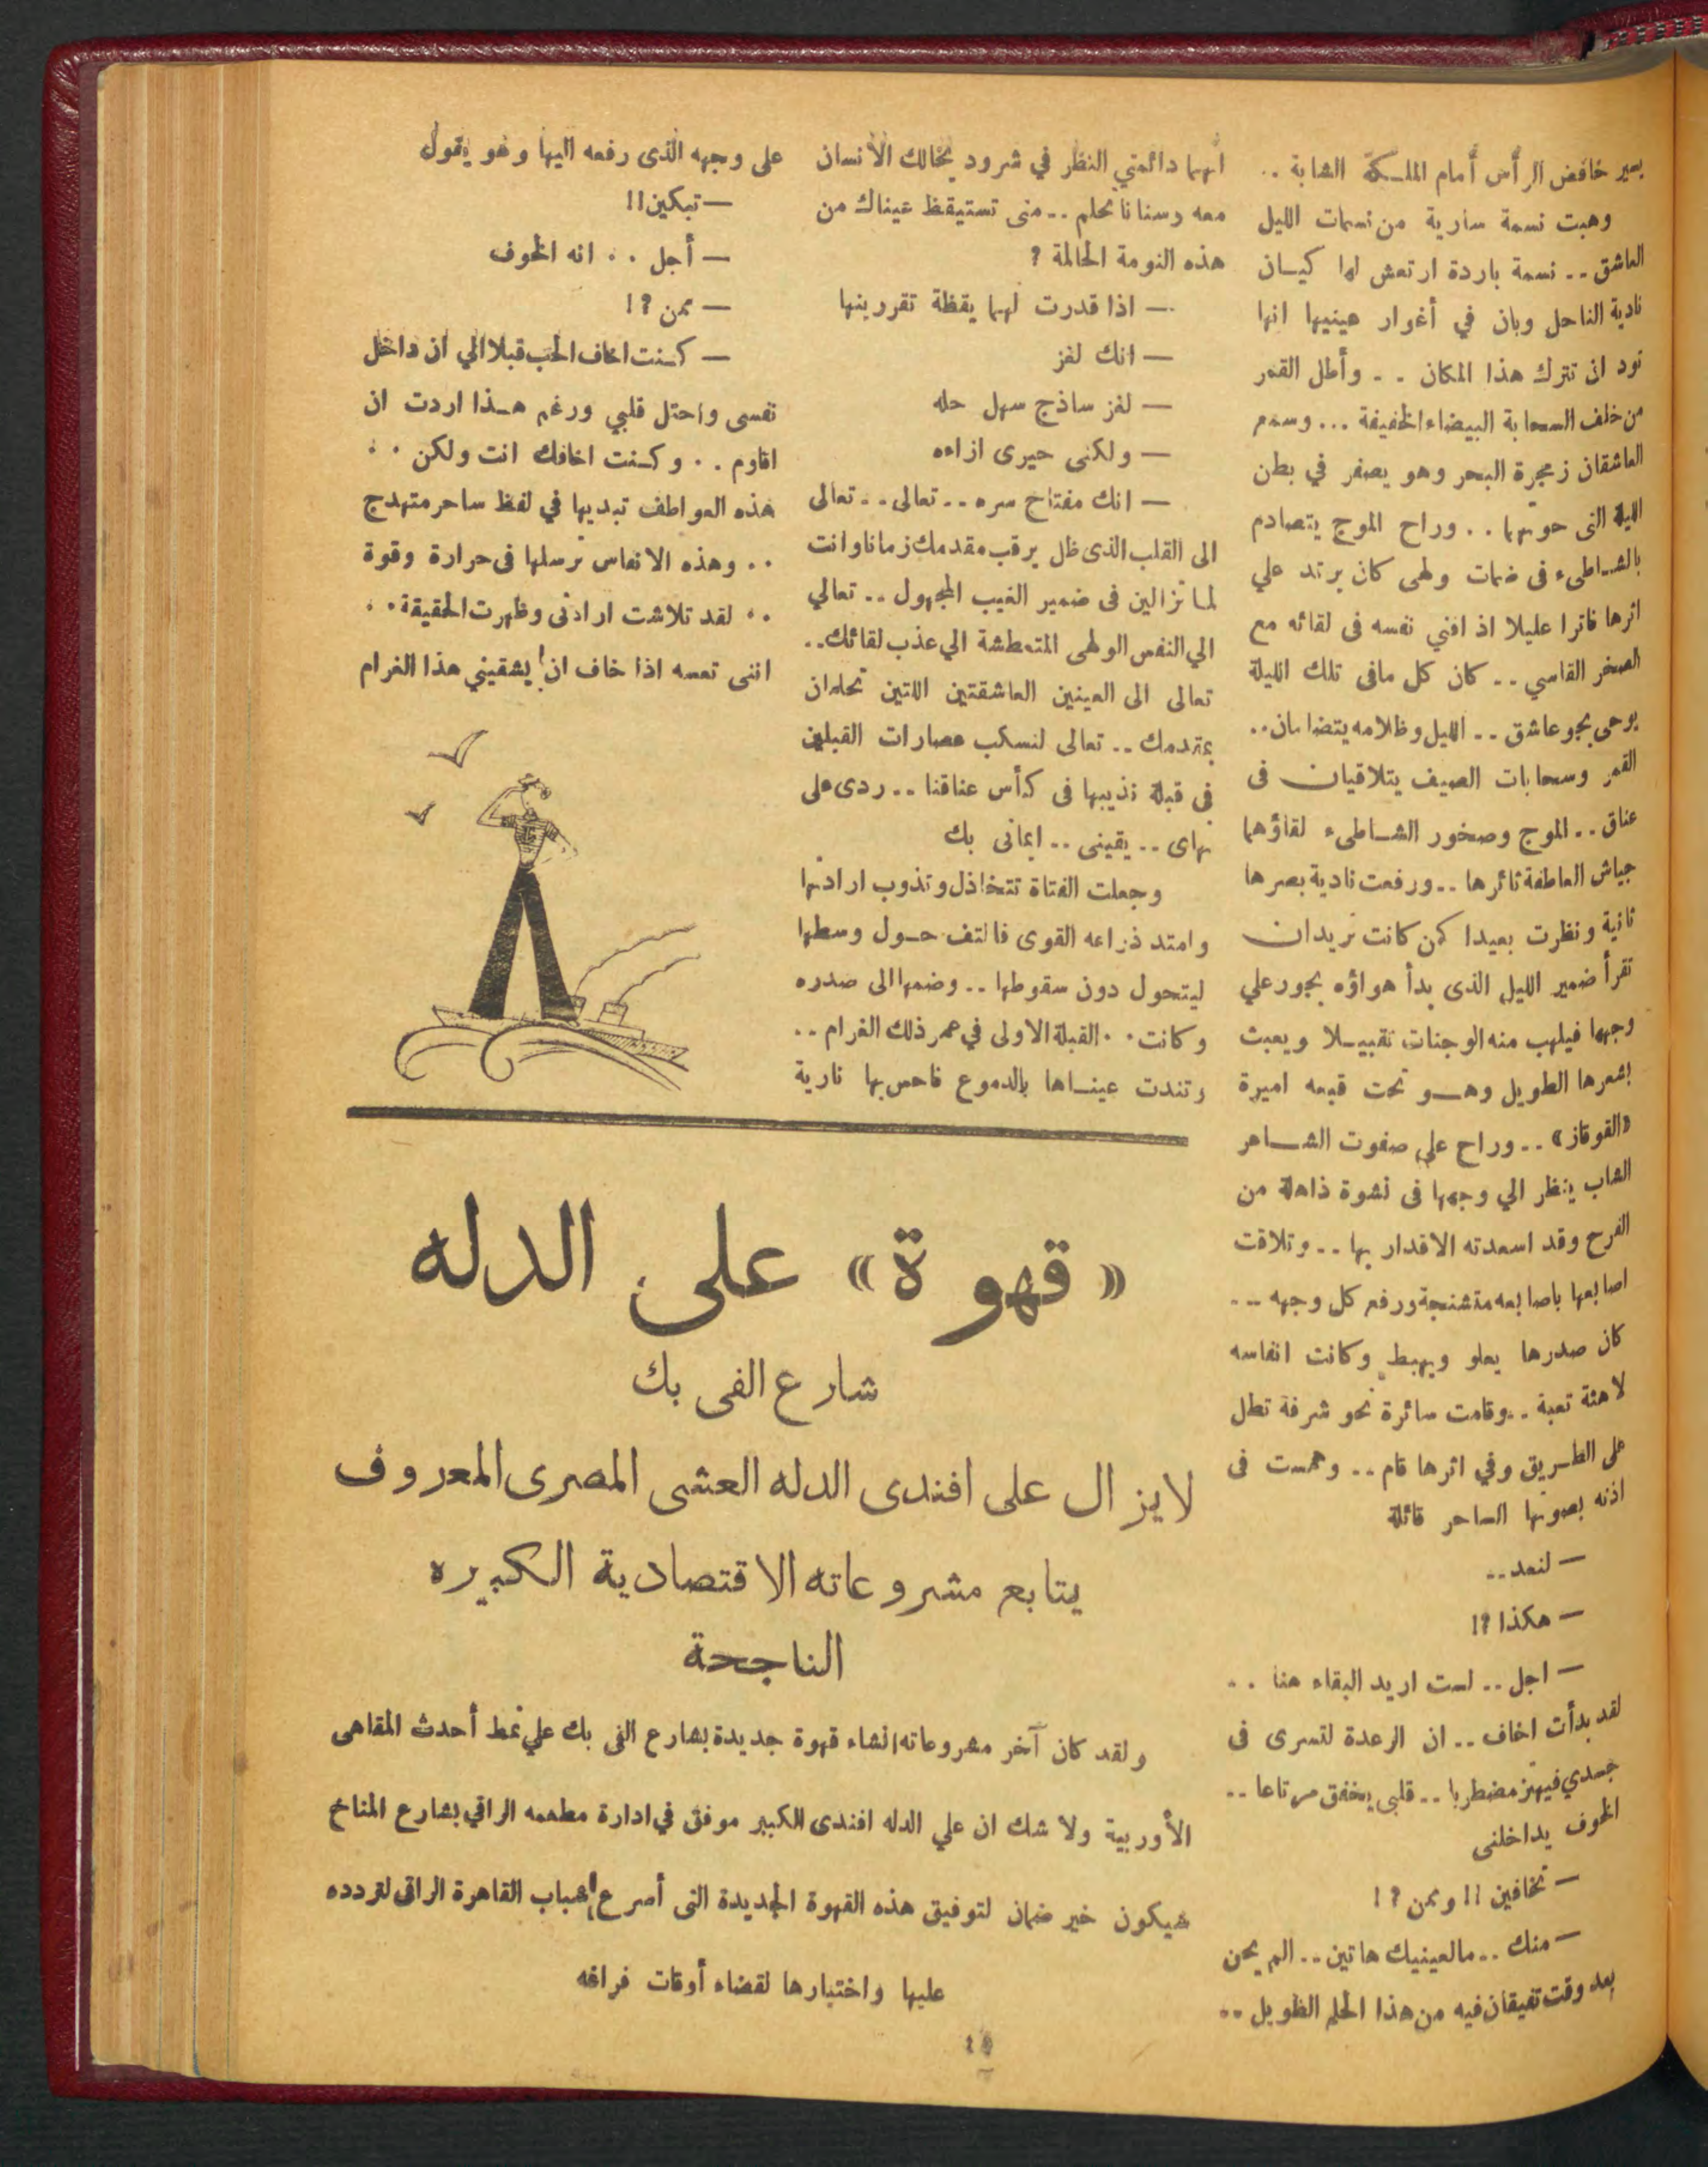 يسير خافض الرأس أمام الملكة الشابة ..
وهبت نسمة سارية من نسمات الليل
العاشق .. نسمة باردة ارتعش لها كيان
نادية الناحل وبان في أغوار عينيها انها
تود ان تترك هذا المكان .. وأطل القمر
من خلف السحابة البيضاء الخفيفة ... وسمع
العاشقان زمجرة البحر وهو يصفر في بطن
الليلة التى حوتهما .. وراح الموج يتصادم
بالشاطىء فى ضمات ولهى كان يرتد علي
اثرها فاترا عليلا اذ افني نفسه فى لقائه مع
الصخر القاسي .. كان كل مافى تلك الليلة
يوحى بجو عاشق .. الليل وظلامه يتضامان ..
القمر وسحابات الصيف يتلاقيان فى
عناق .. الموج وصخور الشاطىء لقاؤهما
جياش العاطفة ثائرها .. ورفعت نادية بصرها
ثانية ونظرت بعيدا كمن كانت تريدان
تقرأ ضمير الليل الذى بدأ هواؤه يجور علي
وجهها فيلهب منه الوجنات تقبيلا ويعبث
بشعرها الطويل وهو تحت قبعه اميرة
«القوقاز» .. وراح علي صفوت الشاعر
الشاب ينظر الي وجهها فى نشوة ذاهلة من
الفرح وقد اسعدته الاقدار بها .. وتلاقت
اصابعها باصابعه متشنجة ورفع كل وجهه ..
كان صدرها يعلو ويهبط وكانت انفاسه
لاهثة تعبة .. وقامت سائرة نحو شرفة تطل
على الطريق وفي اثرها قام .. وهمست فى
اذنه بصوتها الساحر قائلة
— لنعد ..
— هكذا ؟!
— اجل .. لست اريد البقاء هنا ..
لقد بدأت اخاف .. ان الرعدة لتسرى فى
جسدي فيهتز مضطربا .. قلبى يخفق مرتاعا ..
الخوف يداخلنى
— تخافين !! وممن ؟!
— منك .. مالعينيك هاتين .. الم يحن
بعد وقت تفيقان فيه من هذا الحلم الطويل ..
انهما دائمتي النظر في شرود يخالك الانسان
معه وسنانا تحلم .. متى تستيقظ عيناك من
هذه النومة الحالمة ؟
— اذا قدرت لهما يقظة تقررينها
— انك لغز
— لغز ساذج سهل حله
— ولكنى حيرى ازاءه
— انك مفتاح سره .. تعالى .. تعالى
الى القلب الذى ظل يرقب مقدمك زمانا وانت
لما تزالين فى ضمير الغيب المجهول .. تعالي
الي النفس الولهى المتعطشة الي عذب لقائك ..
تعالى الى العينين العاشقتين اللتين تحلمان
بمقدمك .. تعالى لنسكب عصارات القبلين
في قبلة نذيبها فى كأس عناقنا .. ردى على
نهاى .. يقينى .. ايمانى بك
وجعلت الفتاة تتخاذل وتذوب ارادتها
وامتد ذراعه القوى فالتف حول وسطها
ليتحول دون سقوطها .. وضمها الى صدره
وكانت .. القبلة الاولى في عمر ذلك الغرام ..
وتندت عيناها بالدموع فاحس بها نارية
على وجهه الذى رفعه اليها وهو يقول
— تبكين !!
— أجل .. انه الخوف
— ممن ؟!
— كنت اخاف الحب قبلا الي ان داخل
نفسى واحتل قلبي ورغم هذا اردت ان
اقاوم .. وكنت اخافك انت ولكن ..
هذه العواطف تبديها في لفظ ساحر متهدج
.. وهذه الانفاس ترسلها فى حرارة وقوة
.. لقد تلاشت ارادتى وظهرت الحقيقة ..
اننى تعسه اذا خاف ان يشقيني هذا الغرام
« قهوة » على الدله
شارع الفى بك
لا يزال على افندى الدله العشى المصرى المعروف
يتابع مشروعاته الاقتصادية الكبيره
الناجحة
ولقد كان آخر مشروعاته انشاء قهوة جديدة بشارع الفى بك علي نمط أحدث المقاهى
الأوربية ولا شك ان علي الدله افندى الكبير موفق في ادارة مطعمه الراقي بشارع المناخ
سيكون خير ضمان لتوفيق هذه القهوة الجديدة التى أسرع شباب القاهرة الراقى لتردده
عليها واختيارها لقضاء أوقات فراغه